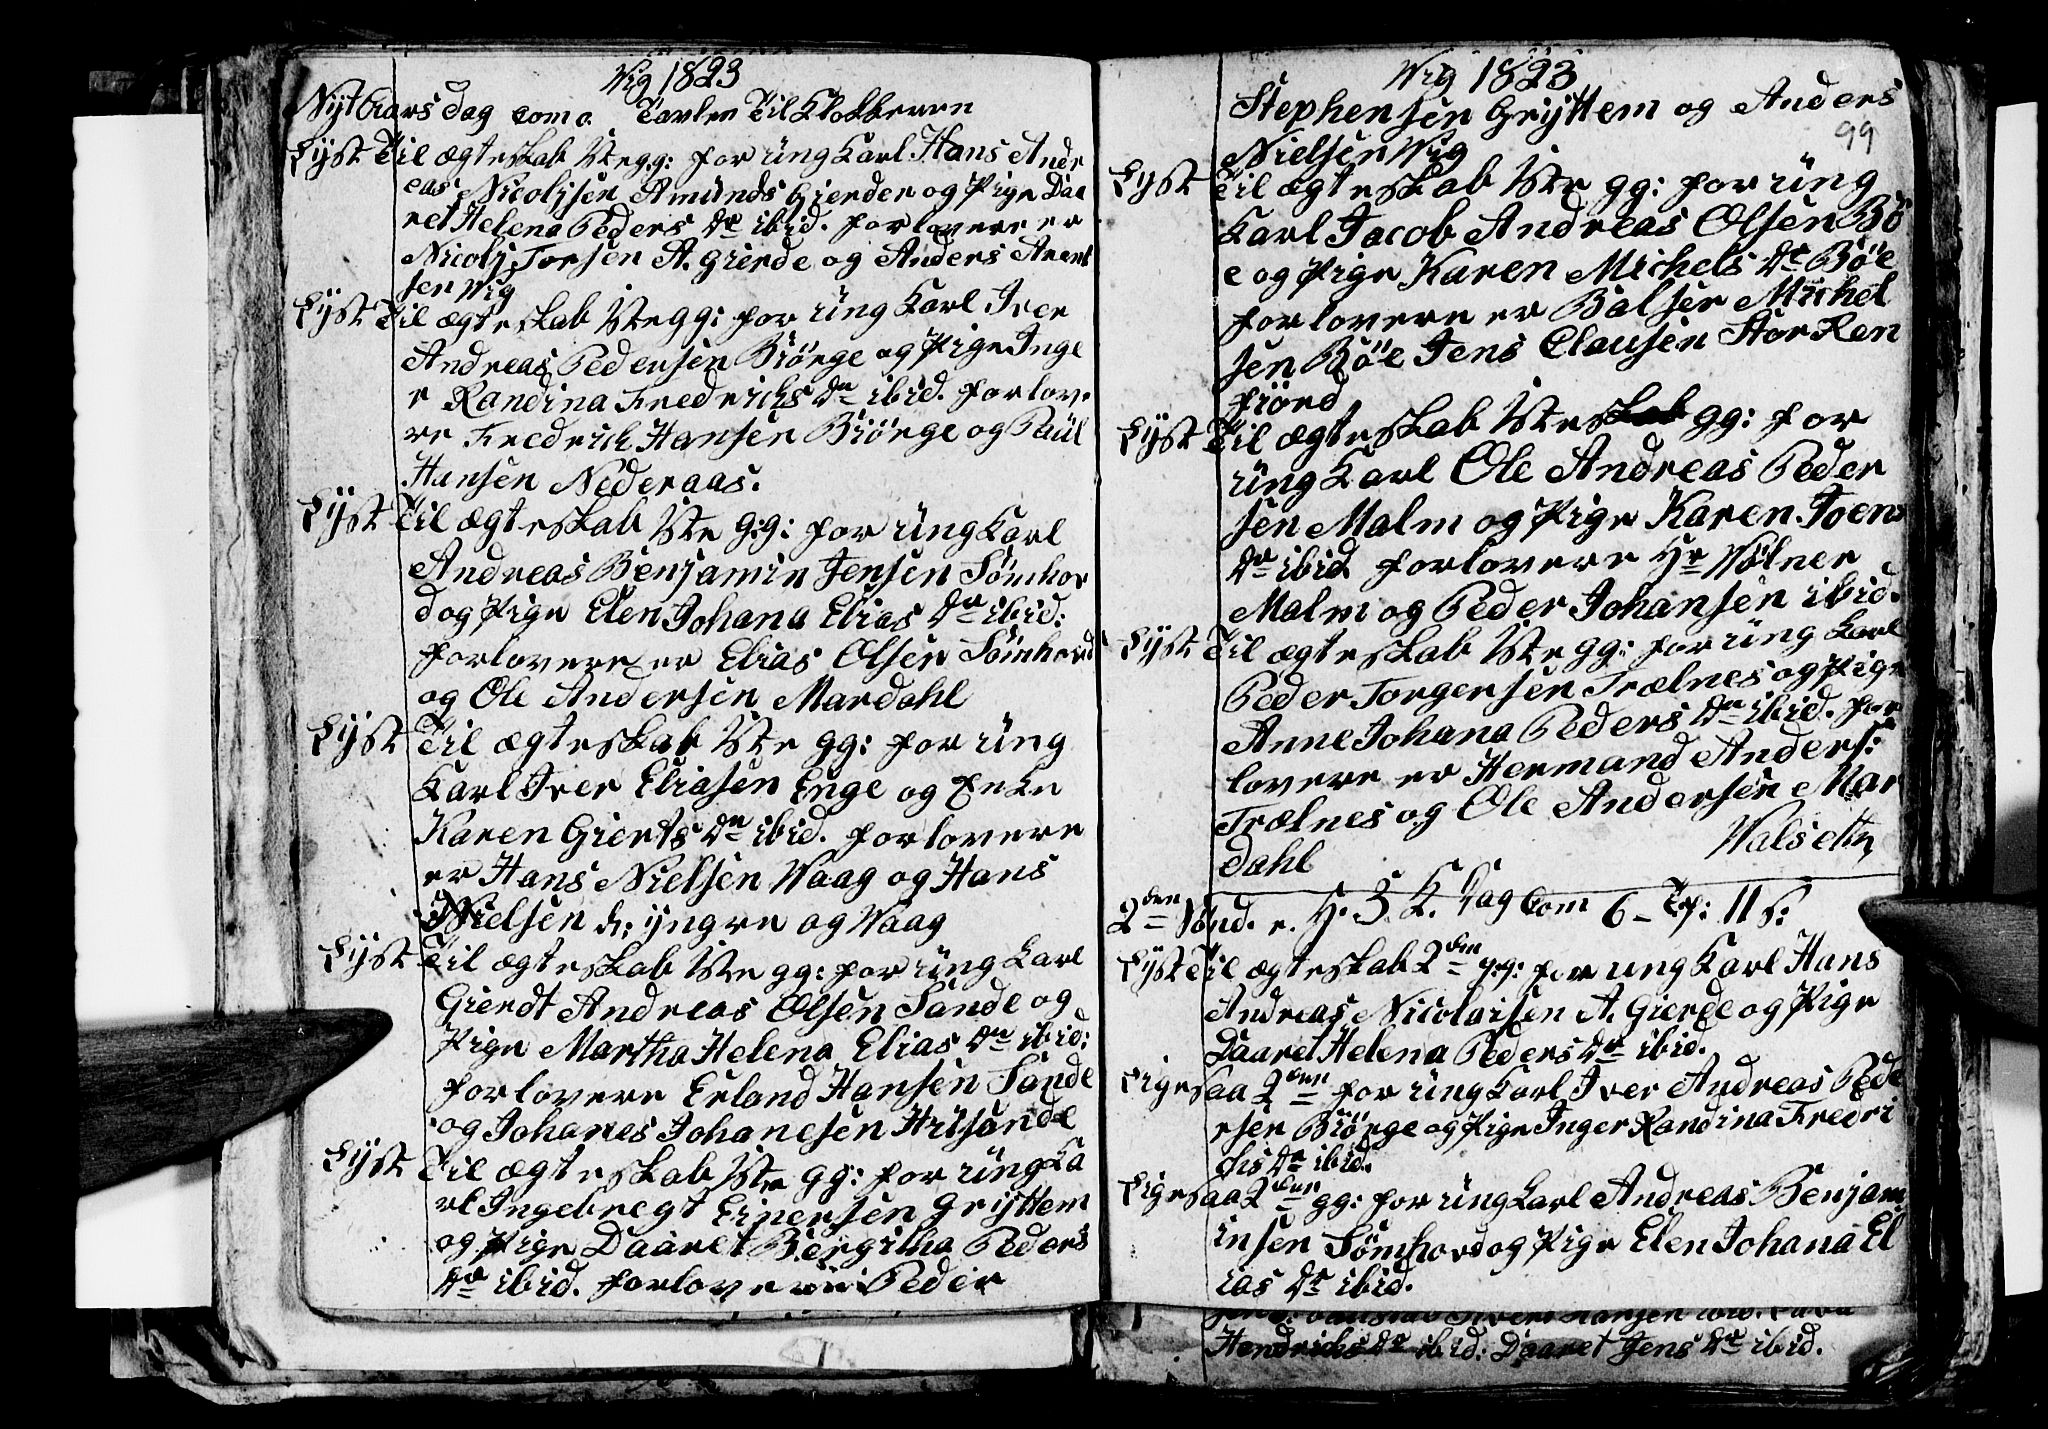 Wig 1823
Nyt Aars dag com o Tavlen Til Klokkeren
Lyst Til ægteskab 1ste gg: for üng Karl Hans Andr
eas Nicolysen Amünds Gierder og Pige Daa
ret Helena Peders Dr ibid. forlovere er
Nicoly Torsen A. gierde og Anders Arent
sen Wig
Lyst Til ægteskab 1ste gg: for üng Karl Iver
Andreas Pedersen Biörge og Pige Inge
r Randina Fredrichs Dr ibid. forlov.
re Fredrich Hansen Biörge og Paül
Hansen Nederaas.
Lyst Til ægteskab 1ste gg: for üng Karl
Andreas Benjamin Jensen Sömhov
d og Pige Elen Johana Elias Dr ibid:
forlovere er Elias Olsen Sömhovd
og Ole Andersen Mardahl
Lyst Til ægteskab 1ste gg: for üng
Karl Iver Eliasen Enge og Enke
Karen Gierts Dr ibid. forlovere
er Hans Nielsen Waag og Hans
Nielsen d: yngre og Waag
Lyst Til ægteskab 1ste gg: for üng Karl
Gierdt Andreas Olsen Sande og
Pige Martha Helena Elias Dr ibid:
forlovere Erland Hansen Sande
og Johanes Johanesen Hüsünde
Lyst Til ægteskab 1ste gg: for üng Ka
rl Ingebregt Einersen Gryttem
og Pige Daaret Bergitha Peders
Dr ibid. forlovere Peder
Wig 1823
Stephensen Gryttem og Anders
99
Nielsen Wig
Lyst Til ægteskab 1ste gg: for üng
Karl Jacob Andreas Olsen Bö
e og Pige Karen Michels Dr Böe
forlovere er Balser Michel
sen Böe Jens Clausen Storken
fiörd
Lyst Til ægteskab 1ste gg: for
üng Karl Ole Andreas Peder
sen Malm og Pige Karen Joens
Dr ibid. forlovere Hr Wölner
Malm og Peder Johansen ibid.
Lyst Til ægteskab 1ste gg: for üng Karl
Peder Torgersen Trælnes og Pige
Anne Johana Peders Dr ibid. for
lovere er Hermand Anders:
Trælnes og Ole Andersen Mar
dahl
2den Sönd. e. H. 3. K. Dag com 6 - Tf: 11 s:
Lyst Til ægteskab 2den gg: for üng Karl Hans
Andreas Nicolaisen A. Gierde og Pige
Daaret Helena Peders Dr ibid.
Ligesaa 2den for üng Karl Iver Andreas Pede
rsen Biörge og Pige Inger Randina Fredri
chs Dr ibid.
Ligesaa 2den gg: for üng Karl Andreas Benjam
insen Sömhovd og Pige Elen Johana El
ias Dr ibid.
Hendrichs Dr ibid: Daaret Jens Dr ibid.